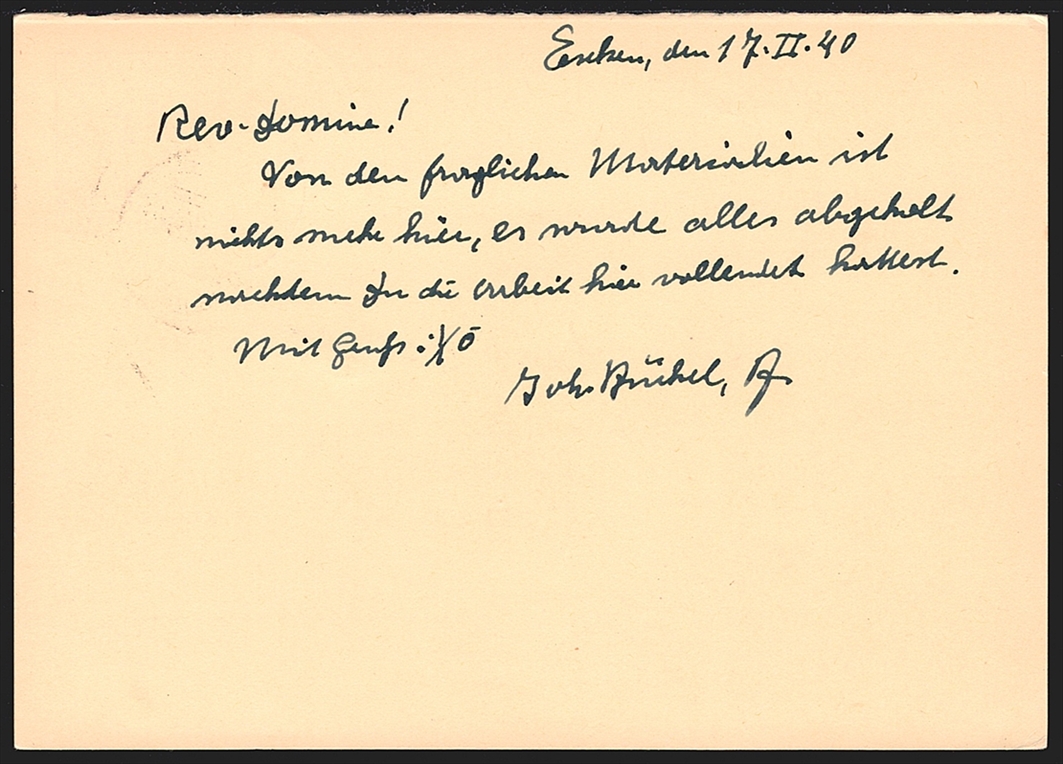 Eschen, den 17.II.40
Rev. Domine!
Von den fraglichen Materialien ist
nichts mehr hier, es wurde alles abgeholt
nachdem Du die Arbeit hier vollendet hattest.
Mit Gruß i. Xo
Joh. Büchel,